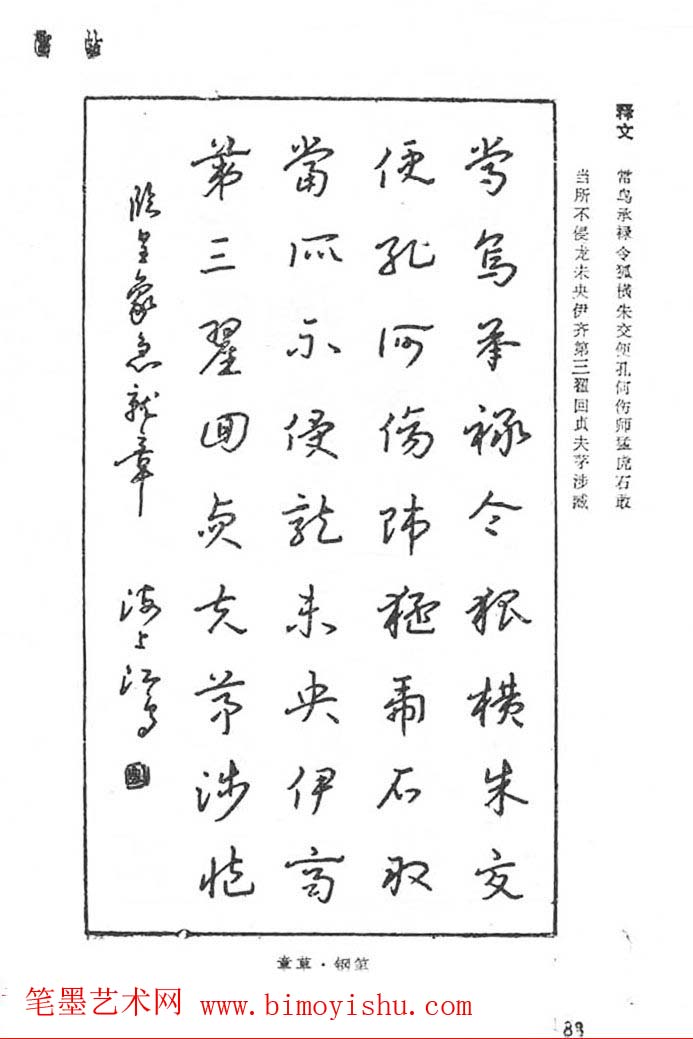 释文
常鸟承禄令狐横朱交便孔何伤师猛虎石敢
当所不侵龙未央伊齐第三翟回贞夫茅涉臧
常鳥承祿令狐横朱交
便孔何傷師猛虎石敢
當所不侵龍未央伊齊
第三翟回貞夫茅涉臧
临皇象急就章 海上江
章草·钢笔
笔墨艺术网 www.bimoyishu.com
89